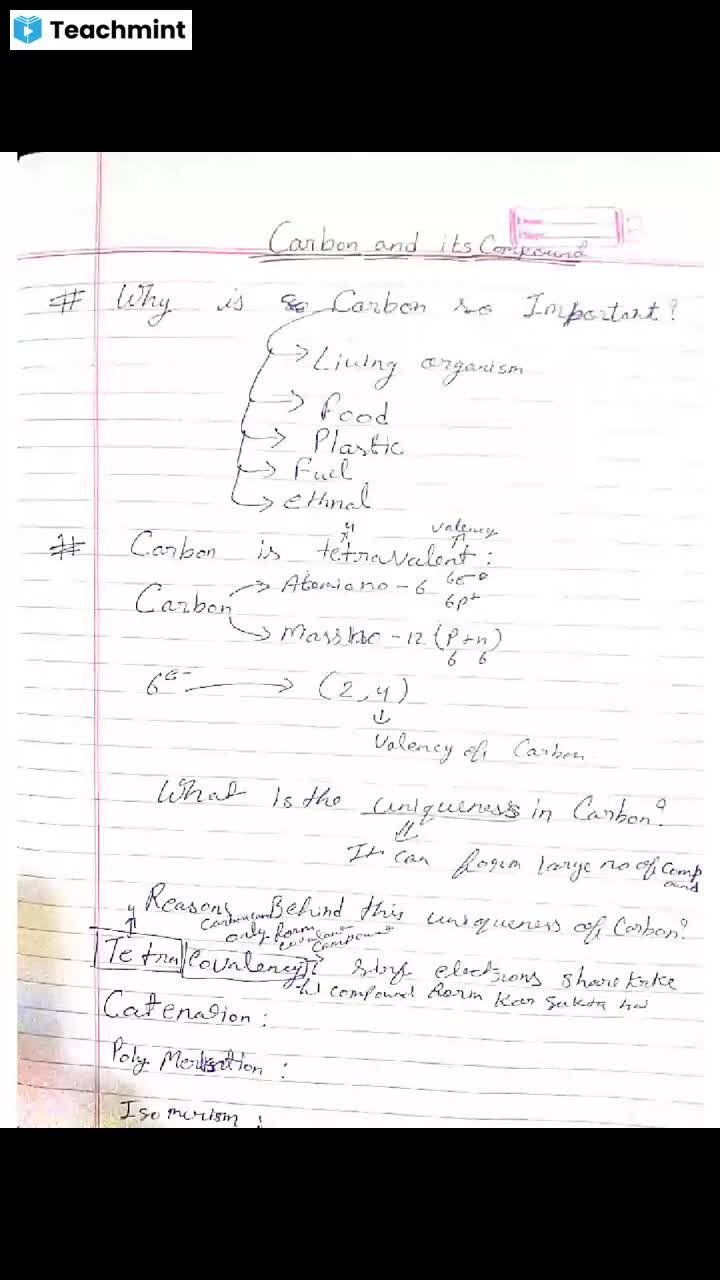 Teachmint
Carbon and its Compound
# Why is so Carbon so Important?
→ Living organism
→ Food
→ Plastic
→ Fuel
→ ethnal
4 valency
# Carbon is tetravalent:
Carbon → Atomic no - 6 6e-
6p+
→ Mass no - 12 (P+n)
6 6
6e- → (2,4)
↓
Valency of Carbon
What is the uniqueness in Carbon?
⇓
It can form large no of comp
ound
4 Reasons Behind this uniqueness of Carbon?
Carbon can
only form
covalent
compound
Tetra Covalency: sirf electrons share krke
hi compound form kar sakta hai
Catenation:
Poly Merisation:
Isomerism: